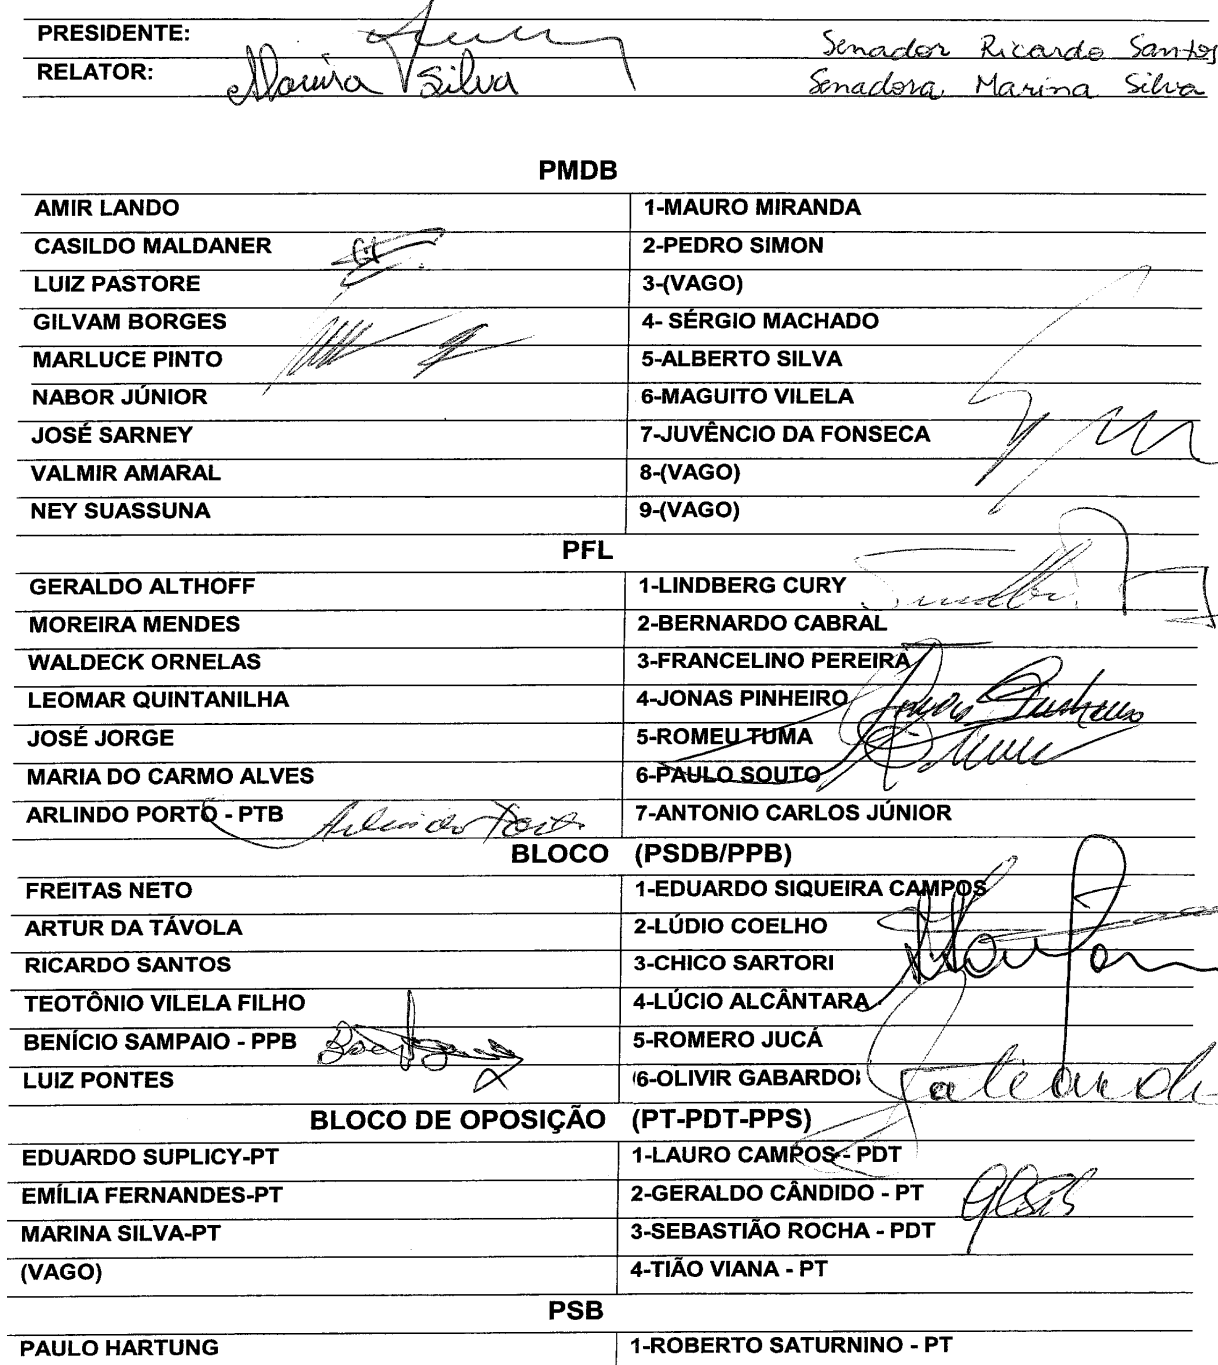 PRESIDENTE: Senador Ricardo Santos
RELATOR: Marina Silva Senadora Marina Silva
PMDB
AMIR LANDO 1-MAURO MIRANDA
CASILDO MALDANER 2-PEDRO SIMON
LUIZ PASTORE 3-(VAGO)
GILVAM BORGES 4- SÉRGIO MACHADO
MARLUCE PINTO 5-ALBERTO SILVA
NABOR JÚNIOR 6-MAGUITO VILELA
JOSÉ SARNEY 7-JUVÊNCIO DA FONSECA
VALMIR AMARAL 8-(VAGO)
NEY SUASSUNA 9-(VAGO)
PFL
GERALDO ALTHOFF 1-LINDBERG CURY
MOREIRA MENDES 2-BERNARDO CABRAL
WALDECK ORNELAS 3-FRANCELINO PEREIRA
LEOMAR QUINTANILHA 4-JONAS PINHEIRO Jonas Pinheiro
JOSÉ JORGE 5-ROMEU TUMA
MARIA DO CARMO ALVES 6-PAULO SOUTO
ARLINDO PORTO - PTB Arlindo Porto 7-ANTONIO CARLOS JÚNIOR
BLOCO (PSDB/PPB)
FREITAS NETO 1-EDUARDO SIQUEIRA CAMPOS
ARTUR DA TÁVOLA 2-LÚDIO COELHO
RICARDO SANTOS 3-CHICO SARTORI
TEOTÔNIO VILELA FILHO 4-LÚCIO ALCÂNTARA
BENÍCIO SAMPAIO - PPB 5-ROMERO JUCÁ
LUIZ PONTES 6-OLIVIR GABARDO
BLOCO DE OPOSIÇÃO (PT-PDT-PPS)
EDUARDO SUPLICY-PT 1-LAURO CAMPOS - PDT
EMÍLIA FERNANDES-PT 2-GERALDO CÂNDIDO - PT
MARINA SILVA-PT 3-SEBASTIÃO ROCHA - PDT
(VAGO) 4-TIÃO VIANA - PT
PSB
PAULO HARTUNG 1-ROBERTO SATURNINO - PT